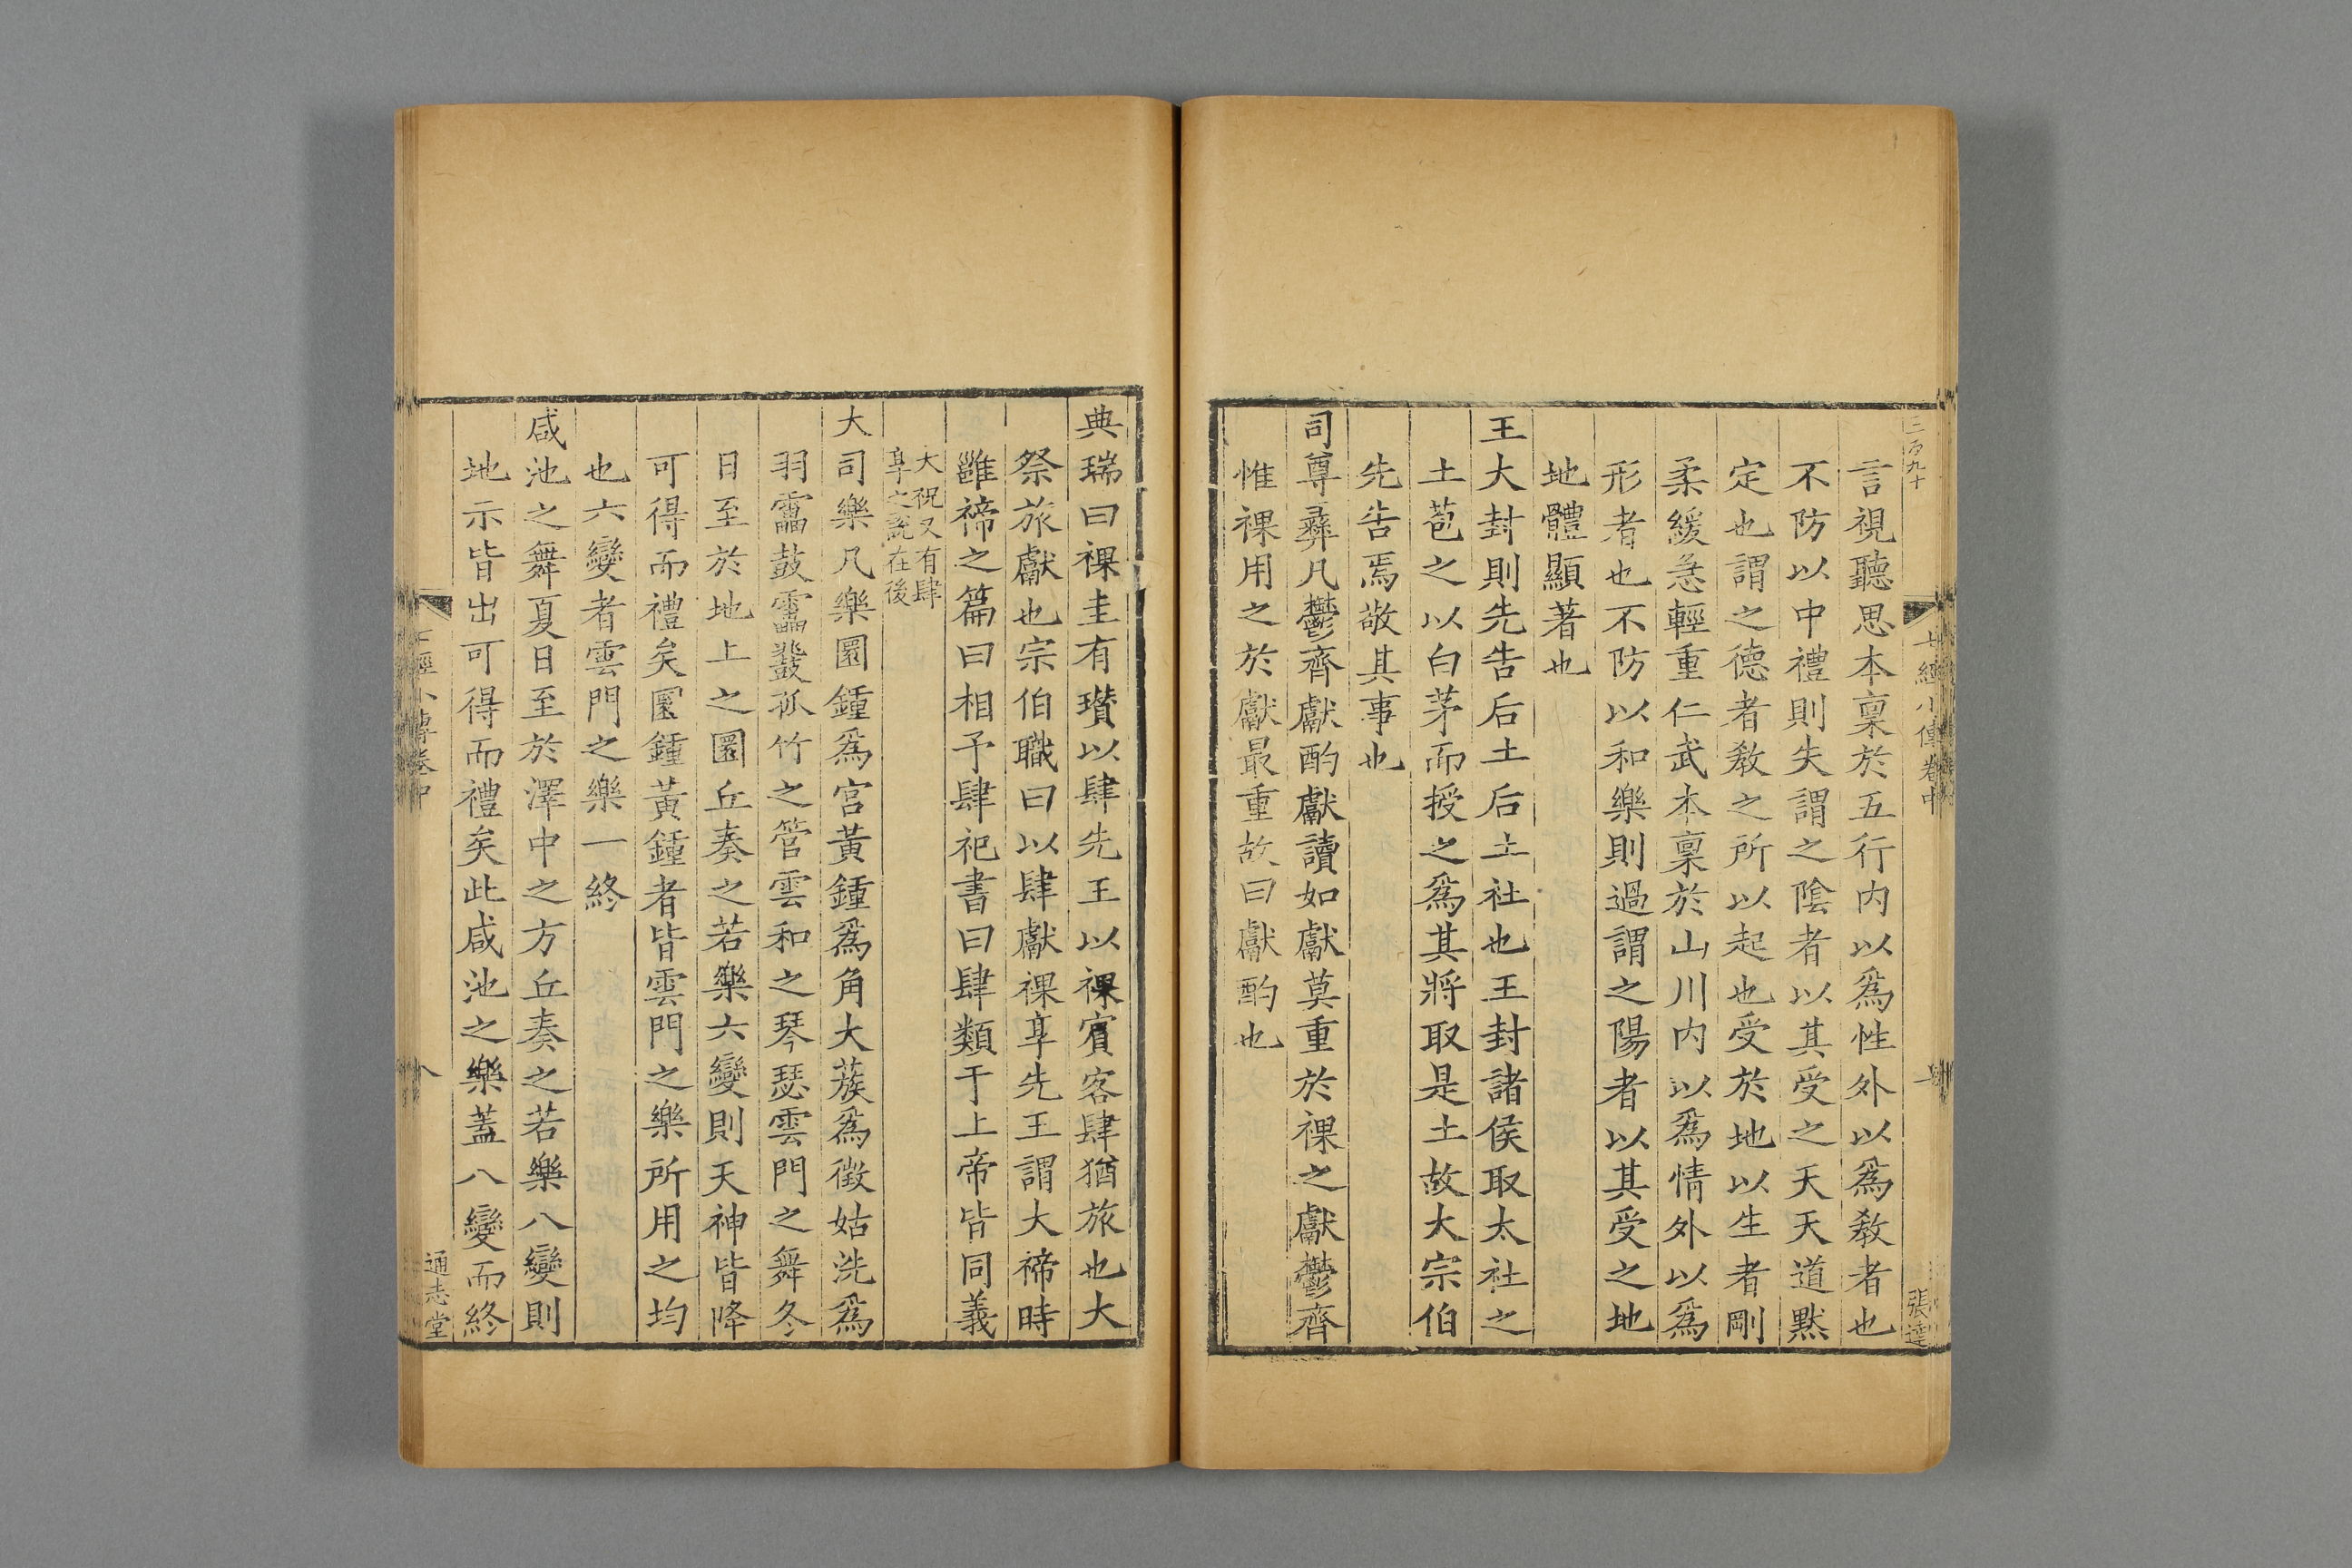 三百九十
七經小傳卷中
七
張達
言視聽思本稟於五行内以爲性外以爲教者也
不防以中禮則失謂之陰者以其受之天天道默
定也謂之德者教之所以起也受於地以生者剛
柔緩急輕重仁武本稟於山川内以爲情外以爲
形者也不防以和樂則過謂之陽者以其受之地
地體顯著也
王大封則先告后土后土社也王封諸侯取太社之
土苞之以白茅而授之爲其將取是土故大宗伯
先告焉敬其事也
司尊彞凡鬱齊獻酌獻讀如獻莫重於祼之獻鬱齊
惟祼用之於獻最重故曰獻酌也
典瑞曰祼圭有瓚以肆先王以祼賓客肆猶旅也大
祭旅獻也宗伯職曰以肆獻祼享先王謂大禘時
雝禘之篇曰相予肆祀書曰肆類于上帝皆同義
大祝又有肆
享之說在後
大司樂凡樂圜鍾爲宮黃鍾爲角大蔟爲徵姑洗爲
羽靁鼓靁鼗孤竹之管雲和之琴瑟雲門之舞冬
日至於地上之圜丘奏之若樂六變則天神皆降
可得而禮矣圜鍾黃鍾者皆雲門之樂所用之均
也六變者雲門之樂一終
咸池之舞夏日至於澤中之方丘奏之若樂八變則
地示皆出可得而禮矣此咸池之樂蓋八變而終
七經小傳卷中
八
通志堂